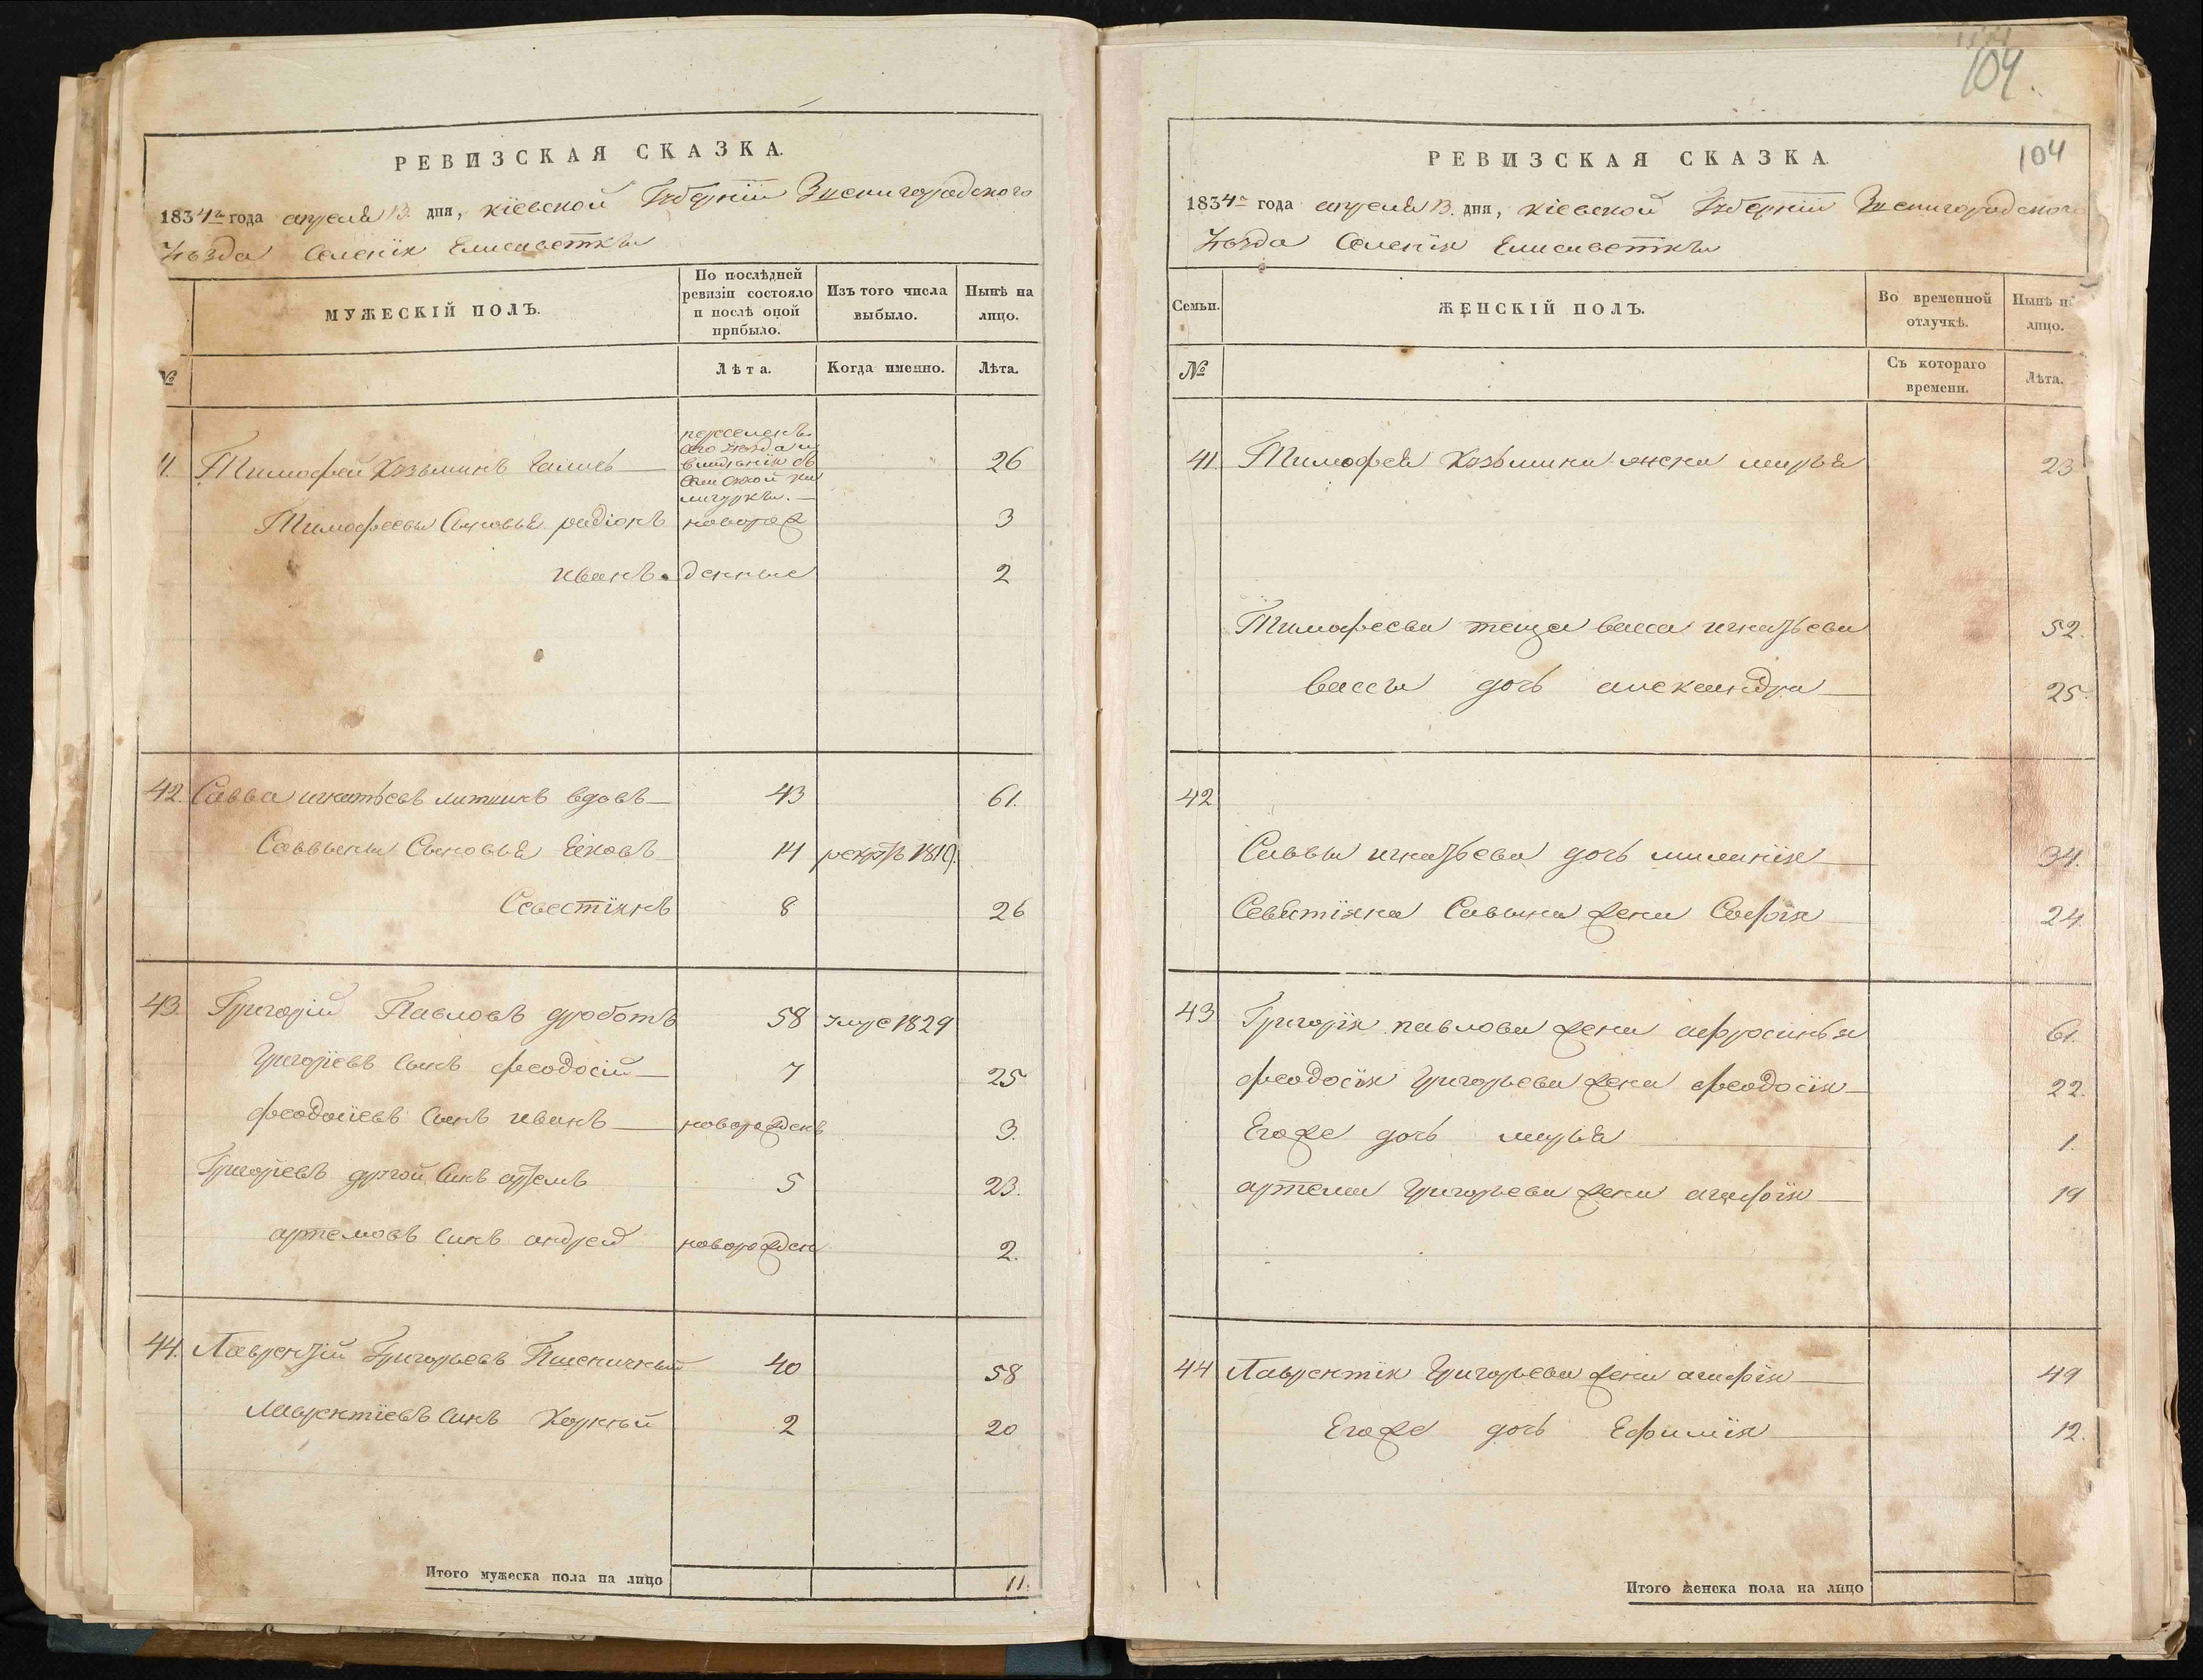 104.
РЕВИЗСКАЯ СКАЗКА.
1834го года апреля 13. дня, кіевской Губерніи Звенигородского
Уезда Селенія Елисаветки
№
МУЖЕСКІЙ ПОЛЪ.
По послѣдней ревизіи состояло и послѣ оной прибыло.
Изъ того числа выбыло.
Нынѣ на лицо.
Лѣта.
Когда именно.
Лѣта.
Тимофей Козьминъ 26
переселенъ
Тимофеевы Сыновья радіонъ новорож 3
иванъ денные 2
42. Савва игнатьевъ литвинъ вдовъ 43 61.
Саввины Сыновья 14 1819.
Севестіянъ 8 26
43. Григорій Павловъ дроботъ 58 умре 1829
Григоріевъ Сынъ феодосій 7 25
феодосіевъ Сынъ иванъ новорожденъ 3.
Григоріевъ другой Сынъ артемъ 5 23.
артемовъ Сынъ андрей новорожден 2.
44. Лаврентій Григорьевъ Пшеничный 40 58
Лаврентіевъ Сынъ Корній 2 20
Итого мужеска пола на лицо 11.
104
РЕВИЗСКАЯ СКАЗКА.
1834го года апреля 13. дня, кіевской Губерніи Звенигородского
Уезда Селенія Елисаветки
Семьи.
ЖЕНСКІЙ ПОЛЪ.
Во временной отлучкѣ.
Нынѣ на лицо.
№
Съ котораго времени.
Лѣта.
41 Тимофея Козьмина жена марья 23
Тимофеева теща васса игнатьева 52.
вассы дочь александра 25.
42
Саввы игнатьева дочь миланія 34.
Севестіяна Савина жена Софія 24.
43 Григорія павлова жена афросинья 61.
феодосія Григорьева жена феодосія 22.
Егоже дочь марья 1.
артема Григорьева жена агафія 19
44 Лаврентія Григорьева жена агафія 49
Егоже дочь Ефимія 12.
Итого женска пола на лицо